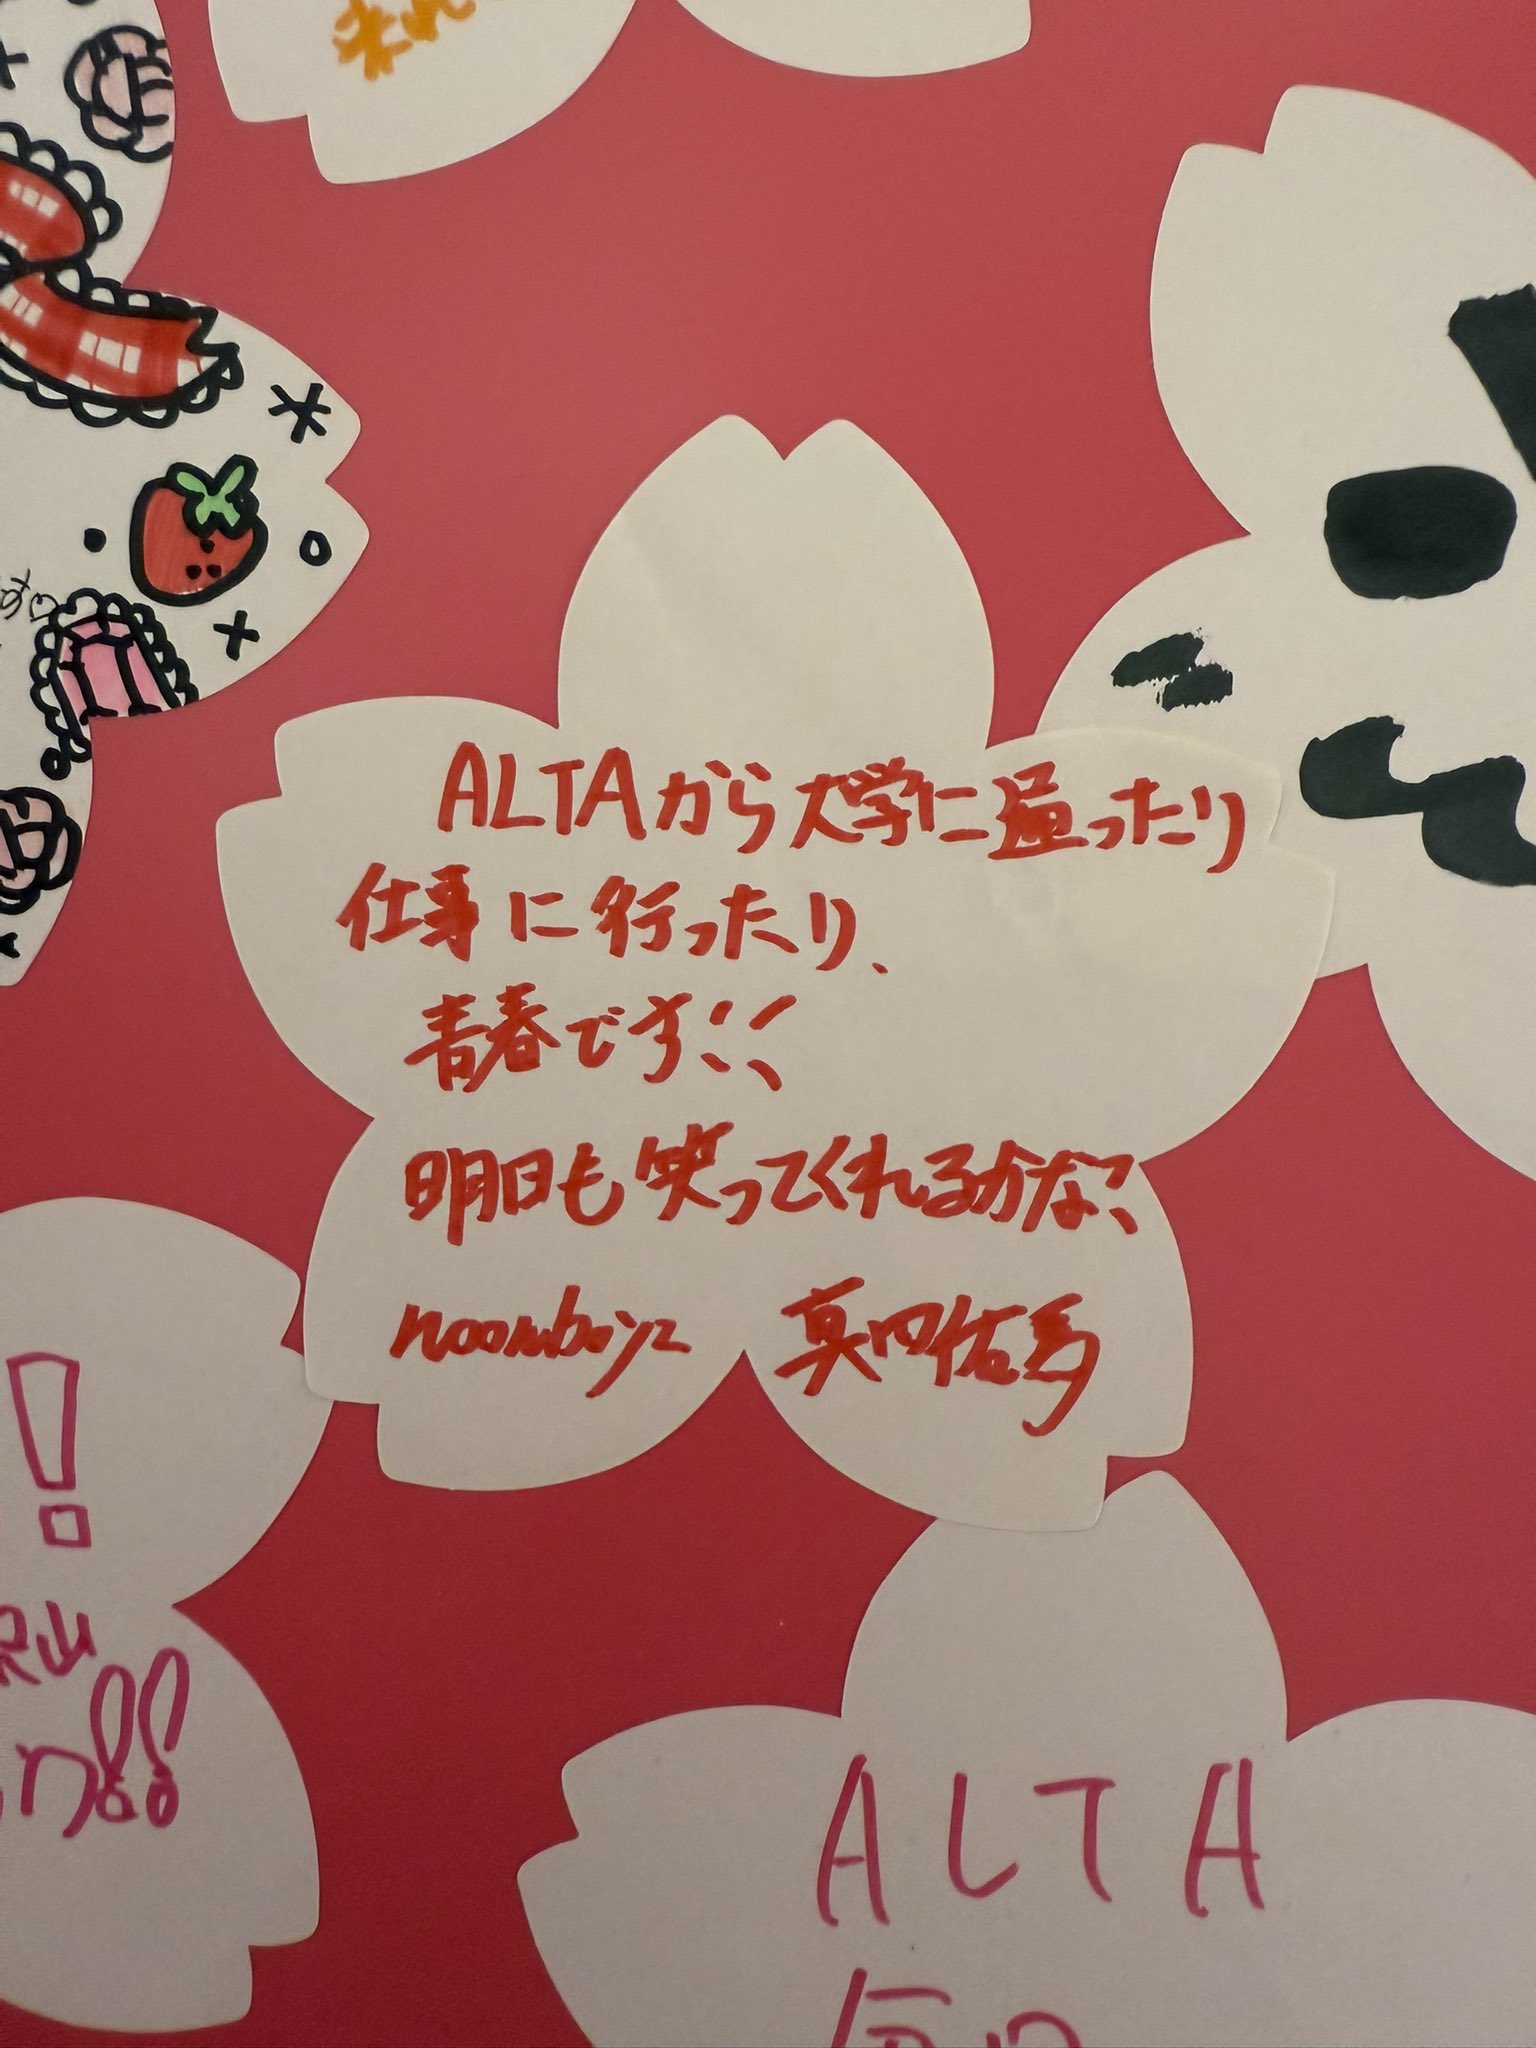 ALTAから大学に通ったり
仕事に行ったり、
青春です!!
明日も笑ってくれるかな?
noonboyz 真田佑馬
ALTA